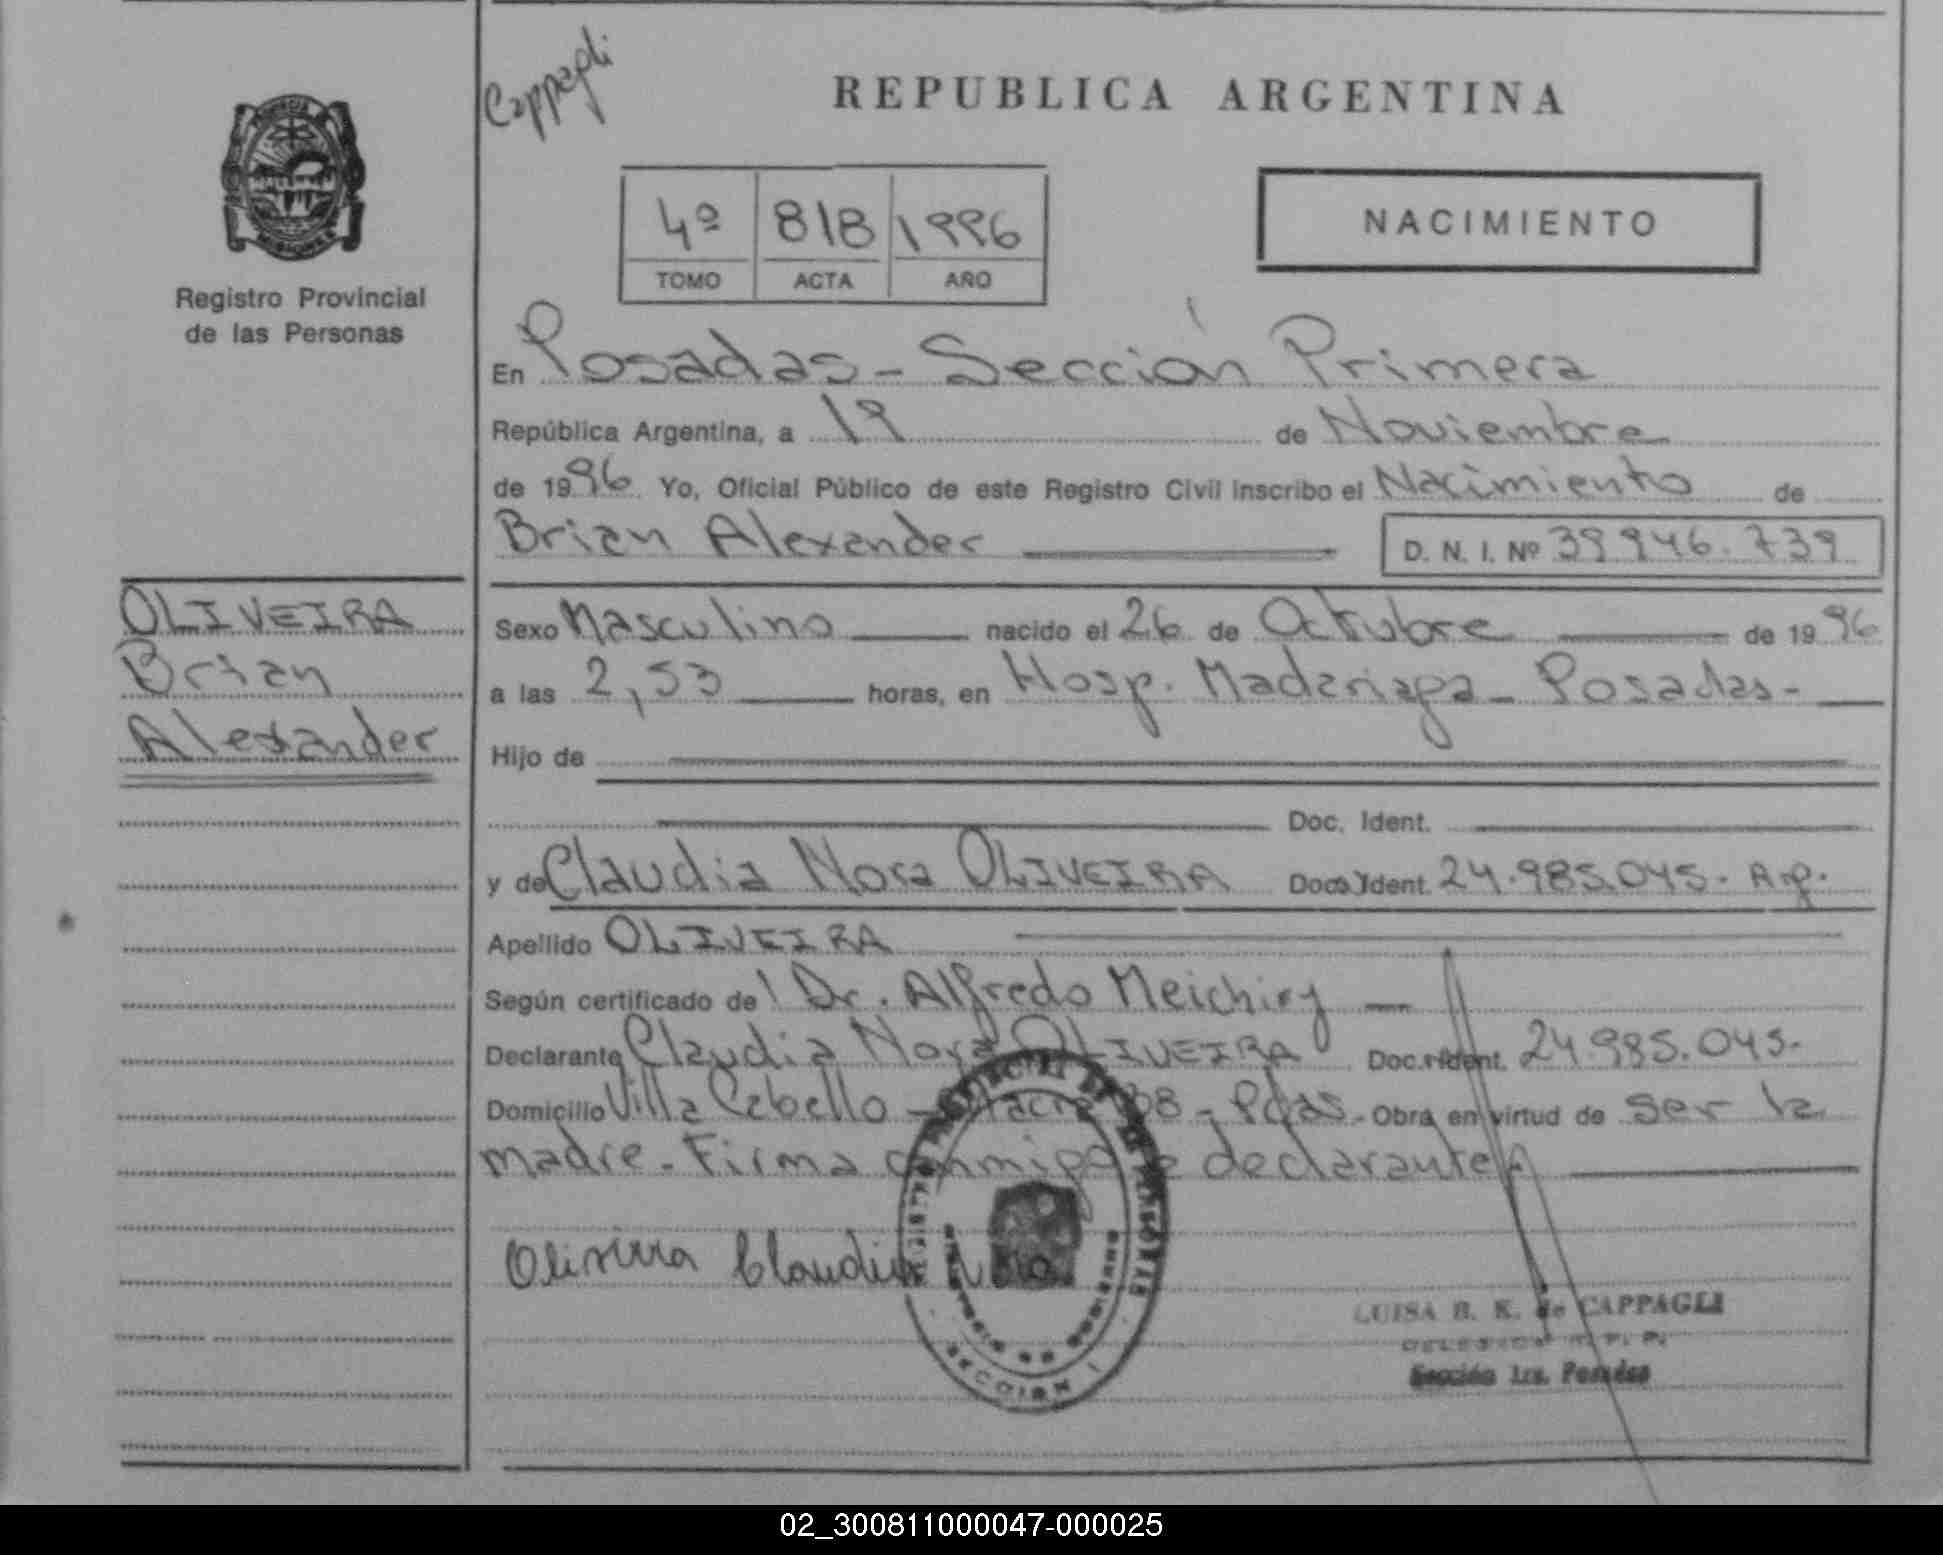 Cappagli
REPUBLICA ARGENTINA
4º 818 1996
TOMO ACTA AÑO
NACIMIENTO
Registro Provincial
de las Personas
En Posadas - Sección Primera
República Argentina, a 19 de Noviembre
de 1996 Yo, Oficial Público de este Registro Civil inscribo el Nacimiento de
Brian Alexander D. N. I. Nº 39946.739
OLIVEIRA
Brian
Alexander
Sexo Masculino nacido el 26 de Octubre de 1996
a las 2,53 horas, en Hosp. Madariaga - Posadas -
Hijo de
Doc. Ident.
y de Claudia Nora OLIVEIRA Doc. Ident. 24.985.045. Arg.
Apellido OLIVEIRA
Según certificado de Dr. Alfredo
Declarante Claudia Nora OLIVEIRA Doc. Ident. 24.985.045.
Domicilio Villa Cabello - - Pdas. Obra en virtud de ser la
madre - Firma conmigo declarante
Oliveira Claudia Nora
LUISA B. K. de CAPPAGLI
Sección 1ra. Posadas
SECCION 1
02_300811000047-000025